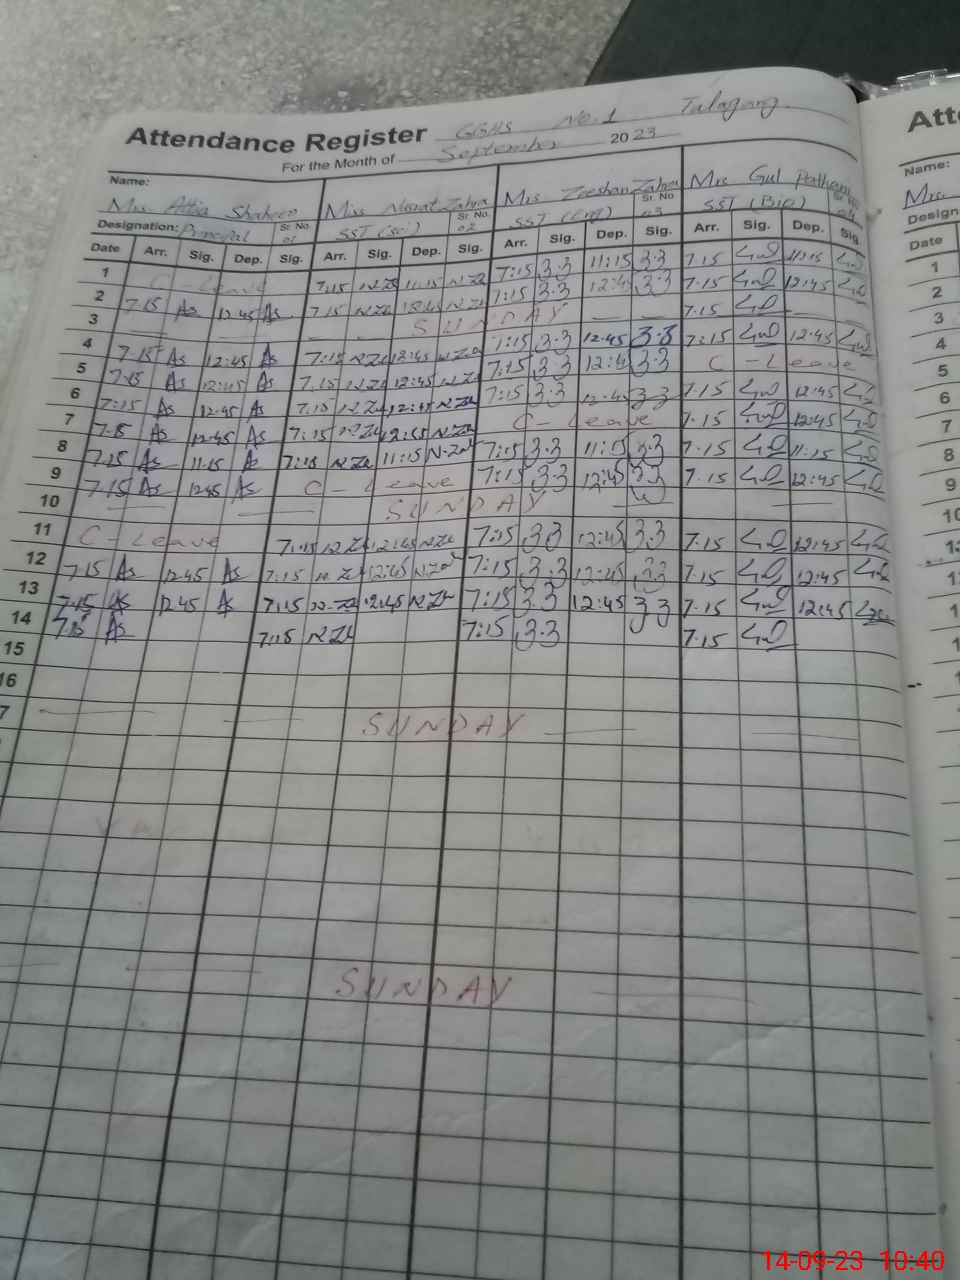 Attendance Register GGHS No. 1 Talagang Att
For the Month of September 20 23
Name: Name:
Mrs. Attia Shaheen Miss Nusrat Zahra Mrs Zeeshan Zahra Mrs Gul Mrs.
Designation: Principal Sr. No. 01 SST (Sci) Sr. No. 02 SST (Eng) Sr. No 03 SST (Bio) Sr. No Design
Date Arr. Sig. Dep. Sig. Arr. Sig. Dep. Sig. Arr. Sig. Dep. Sig. Arr. Sig. Dep. Sig. Date
1 C - Leave 7:15 N.Za 11:15 N.Za 7:15 3.3 11:15 3.3 7.15 11:15 1
2 7:15 As 12.45 As 7.15 N.Za 12:45 N.Za 7:15 3.3 12:45 3.3 7.15 12:45 2
3 SUNDAY 7.15 3
4 7-15 As 12:45 As 7:15 N.Za 12:45 N.Za 7:15 3.3 12.45 3.3 7:15 12:45 4
5 7.15 As 12:45 As 7.15 N.Za 12:45 N.Za 7:15 3.3 12:45 3.3 C - Leave 5
6 7:15 As 12.45 As 7.15 N.Za 12:45 N.Za 7:15 3.3 12:45 3.3 7.15 12:45 6
7 7.15 As 12.45 As 7:15 N.Za 12:45 N.Za C - Leave 7.15 12:45 7
8 7.15 As 11.15 As 7:15 N.Za 11:15 N.Za 7:15 3.3 11:15 3.3 7.15 11.15 8
9 7.15 As 12.45 As C - Leave 7:15 3.3 12:45 3.3 7.15 12:45 9
10 SUNDAY 10
11 C - Leave 7:15 N.Za 12:45 N.Za 7:15 3.3 12:45 3.3 7.15 12:45
12 7.15 As 12.45 As 7:15 N.Za 12:45 N.Za 7:15 3.3 12:45 3.3 7.15 12:45
13 7.15 As 12.45 As 7:15 N.Za 12:45 N.Za 7:15 3.3 12:45 3.3 7.15 12:45
14 7.15 As 7:15 N.Za 7:15 3.3 7.15
15
16
7 SUNDAY
SUNDAY
14-09-23 10:40